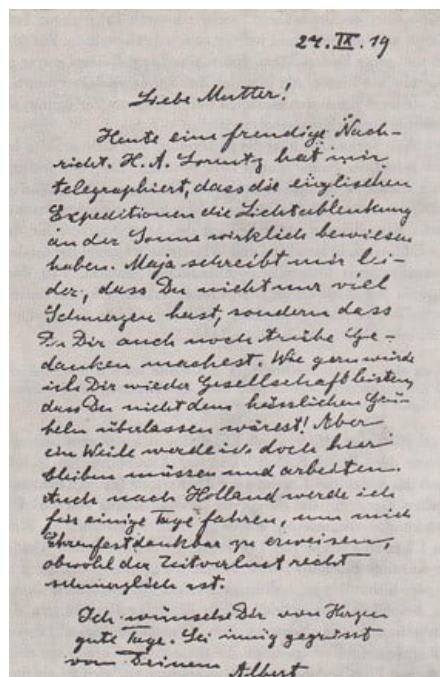 24.IX.19
Liebe Mutter!
Heute eine freudige Nach-
richt. H. A. Lorentz hat mir
telegraphiert, dass die englischen
Expeditionen die Lichtablenkung
an der Sonne wirklich bewiesen
haben. Maja schreibt mir lei-
der, dass Du nicht nur viel
Schmerzen hast, sondern dass
Du Dir auch noch trübe Ge-
danken machest. Wie gern würde
ich Dir wieder Gesellschaft leisten,
dass Du nicht dem hässlichen Grü-
beln überlassen wärest! Aber
ein Weile werde ich doch hier
bleiben müssen und arbeiten.
Auch nach Holland werde ich
für einige Tage fahren, um mich
Ehrenfest dankbar zu erweisen,
obwohl der Zeitverlust recht
schmerzlich ist.
Ich wünsche Dir von Herzen
gute Tage. Sei innig gegrüsst
von Deinem
Albert